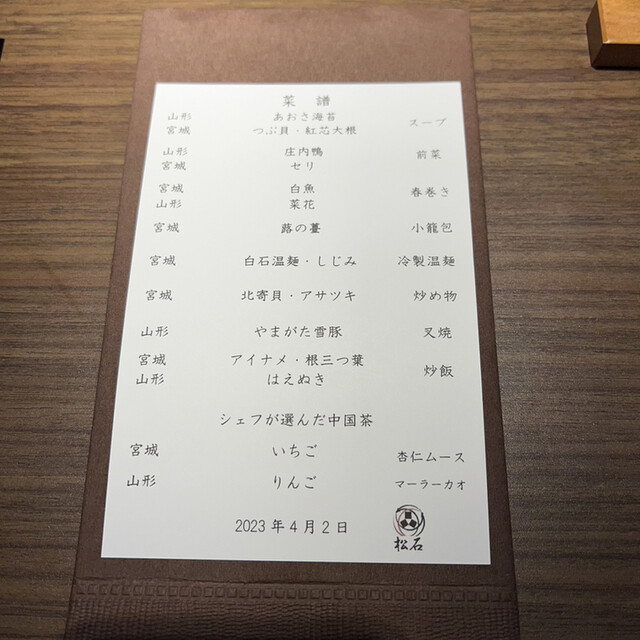 菜 譜
山形 あおさ海苔 スープ
宮城 つぶ貝・紅芯大根
山形 庄内鴨 前菜
宮城 セリ
宮城 白魚 春巻き
山形 菜花
宮城 蕗の薹 小籠包
宮城 白石温麺・しじみ 冷製温麺
宮城 北寄貝・アサツキ 炒め物
山形 やまがた雪豚 叉焼
宮城 アイナメ・根三つ葉 炒飯
山形 はえぬき
シェフが選んだ中国茶
宮城 いちご 杏仁ムース
山形 りんご マーラーカオ
2023年4月2日
松石